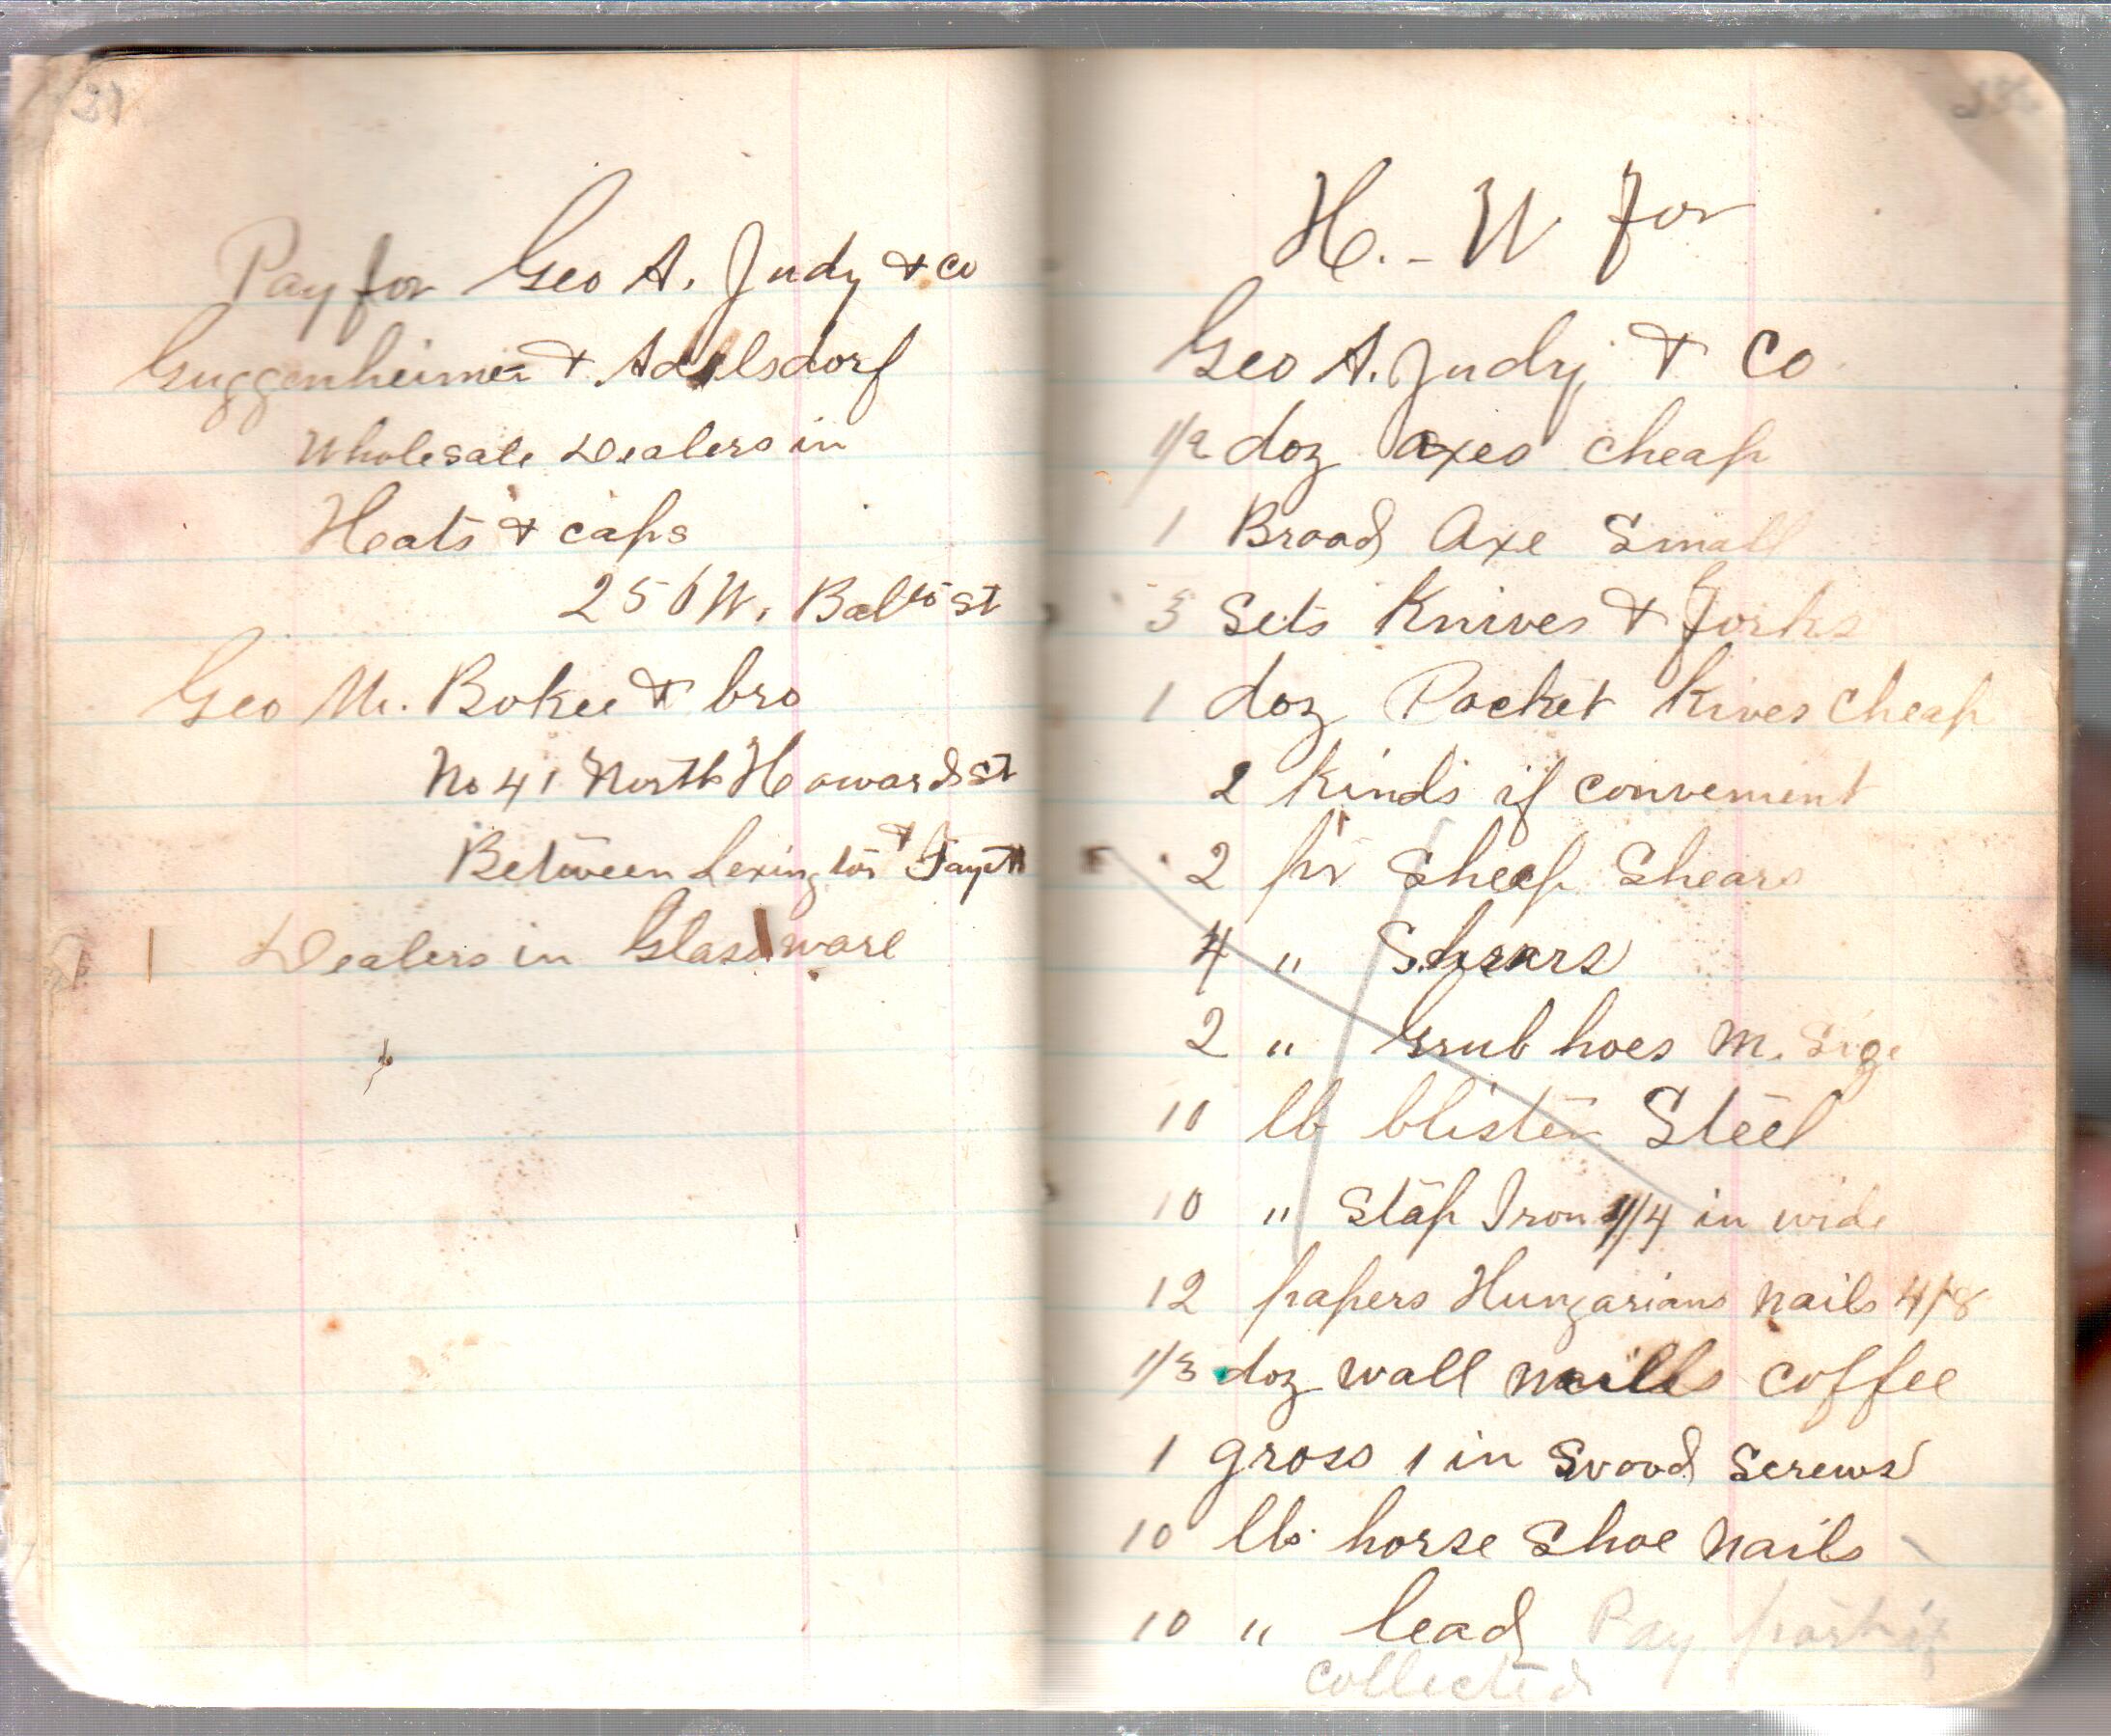 21
Pay for Geo A. Judy & co
Guggenheimer & Adelsdorf
Wholesale Dealers in
Heats & caps
256 W. Balto st
Geo M. Bokee & bro
No 41 North Howard st
Between Lexington & Fayett
Dealers in Glassware
H. - W for
Geo A. Judy & Co
1/2 doz axes cheap
1 Broad Axe Small
3 Sets Knives & Forks
1 doz Pocket Kives cheap
2 kinds if convenient
2 pr Sheep Shears
4 " Shears
2 " Grub hoes M. Size
10 lb blister Steel
10 " Stap Iron 1/4 in wide
12 papers Hungarians nails 4/8
1/3 doz wall mills coffee
1 gross 1 in Wood Screws
10 lb. horse Shoe Nails
10 " lead Pay if
collected